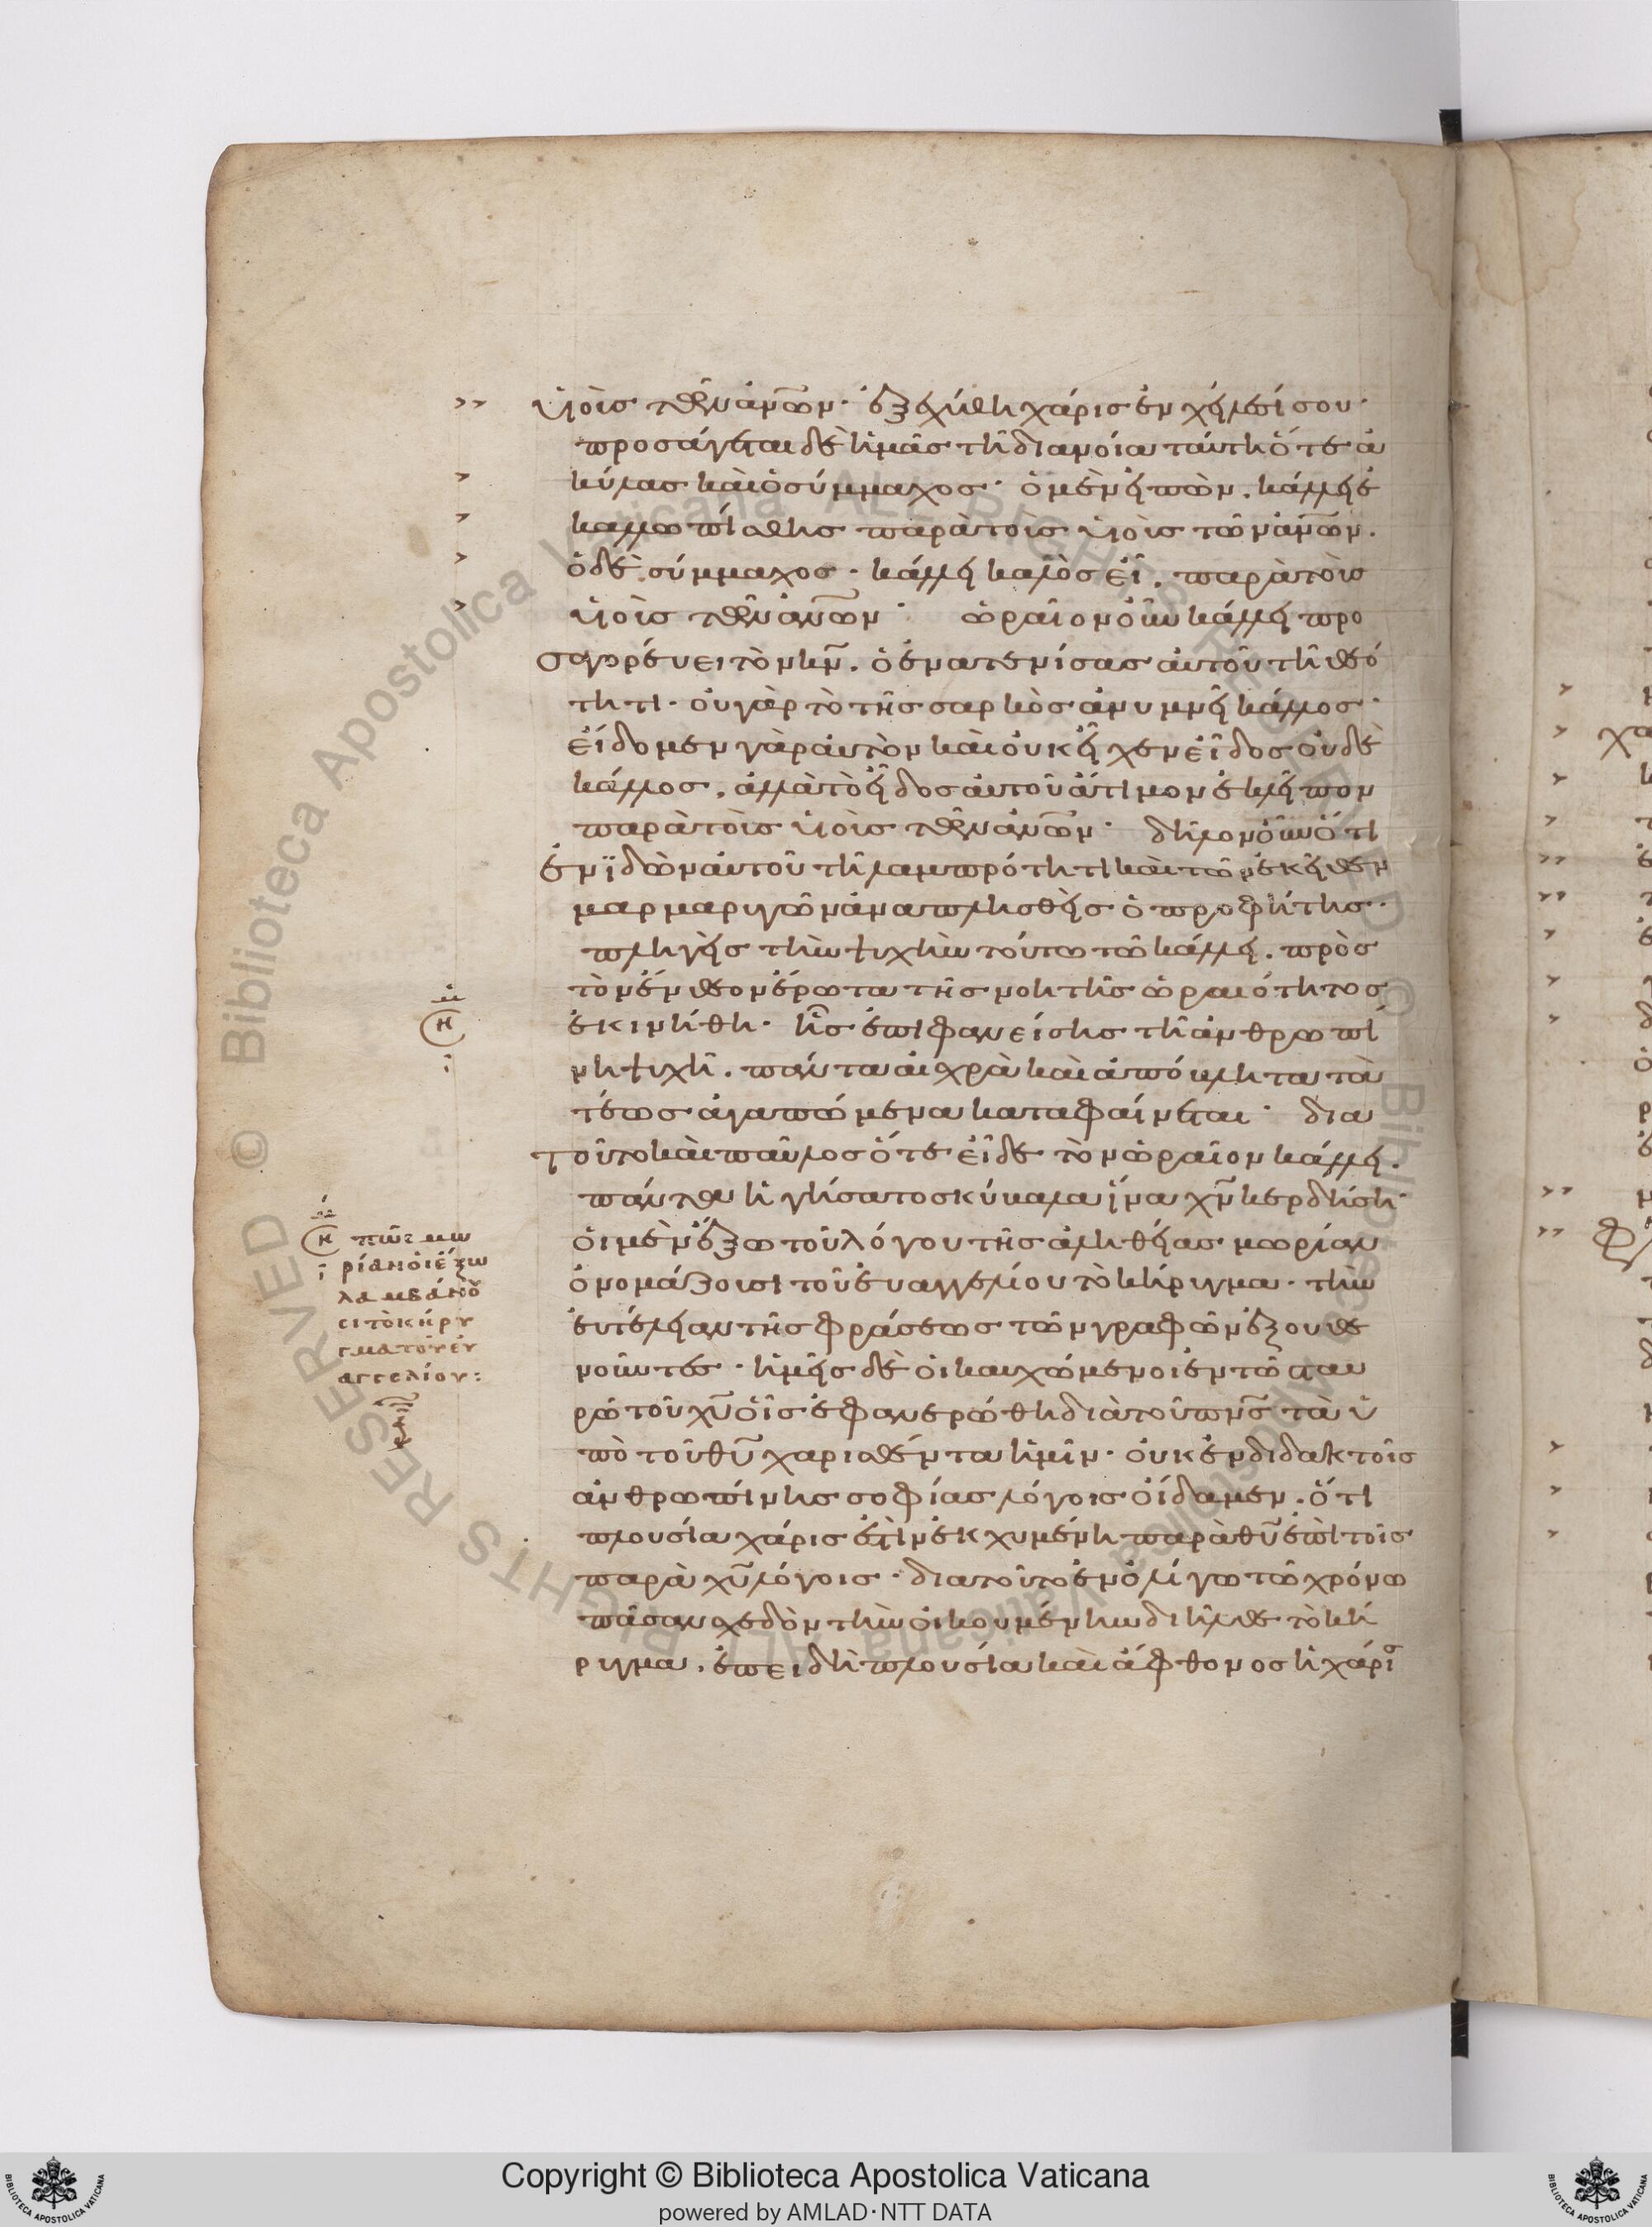 υἱοὺς τῶν ἀν̅ων· ἐξεχύθη χάρις ἐν χείλεσί σου·
προσάγεται δὲ ἡμᾶς τῇ διανοία ταύτη ὅτε ἀ
κύλας καὶ ὁ σύμμαχος· ὁ μὲν εἰπὼν. κάλλει ἐ
καλλωπίσθης παρὰ τοὺς υἱοὺς τῶν ἀν̅ων.
ὁ δὲ σύμμαχος· κάλλει καλὸς εἶ. παρὰ τοὺς
υἱοὺς τῶν ἀν̅ων· ὡραῖον οὖν κάλλει προ
σαγορεύει τὸν κν̅. ὁ ἐνατενίσας αὐτοῦ τῆ θεό
τητι· οὐ γὰρ τὸ τῆς σαρκὸς ἀνυμνεῖ κάλλος·
εἴδομεν γὰρ αὐτὸν καὶ οὐκ εἶχεν εἶδος οὐδὲ
κάλλος. ἀλλὰ τὸ εἶδος αὐτοῦ ἄτιμον ἐκλεῖπον
παρὰ τοὺς υἱοὺς τῶν ἀν̅ων· δῆλον οὖν ὅτι
ἐνϊδὼν αὐτοῦ τῆ λαμπρότητι καὶ τῶν ἐκεῖθεν
μαρμαρυγῶν ἀναπλησθεὶς ὁ προφήτης·
πληγεὶς τὴν ψυχὴν τούτω τῶ κάλλει. πρὸς
τὸν ἔνθεον ἔρωτα τῆς νοητῆς ὡραιότητος
ἐκινήθη· ἧς ἐπιφανείσης τῆ ἀνθρωπί
νη ψυχῆ. πάντα αἰσχρὰ καὶ ἀπόβλητα τὰ
τέως ἀγαπώμενα καταφαίνεται· δια
τοῦτο καὶ παῦλος ὅτε εἶδε τὸν ὡραῖον κάλλει.
πάντα ἡγήσατο σκύβαλα ἵνα χν̅ κερδήση·
οἱ μὲν ἔξω τοῦ λόγου τῆς ἀληθείας μωρίαν
ὀνομάζουσι τοῦ εὐαγγελίου τὸ κήρυγμα· τὴν
εὐτέλειαν τῆς φράσεως τῶν γραφῶν ἐξουθε
νοῦντες· ἡμεῖς δὲ οἱ καυχώμενοι ἐν τῶ σταυ
ρῶ τοῦ χυ̅ οἷς ἐφανερώθη διὰ τοῦ πνς̅ τὰ ὑ
πὸ τοῦ θυ̅ χαρισθέντα ἡμῖν· οὐκ ἐν διδακτοῖς
ἀνθρωπίνης σοφίας λόγοις οἴδαμεν. ὅτι
πλουσία χάρις ἐστὶν ἐκχυμένη παρὰ θυ̅ ἐπὶ τοῖς
παρὰ χυ̅ λόγοις· διατοῦτο ἐν ὀλίγω τῶ χρόνω
πᾶσαν σχεδὸν τὴν οἰκουμένην διῆλθε τὸ κή
ρυγμα. ἐπειδὴ πλουσία καὶ ἄφθονος ἡ χάρις
πῶς μω
ρίαν οἱ ἔξω
λαμβάνου
σι τὸ κήρυ
γμα τοῦ εὐ
αγγελίου:
Copyright © Biblioteca Apostolica Vaticana
powered by AMLAD·NTT DATA